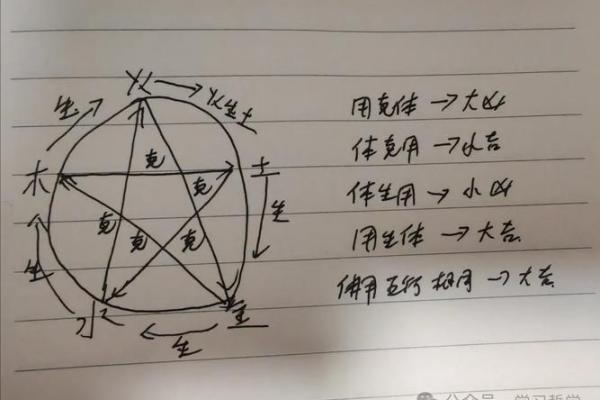 火 → 火生土
生
克
木
克
土
克
克
克
生
生
水
金
生
用克体 → 大凶
体克用 → 小吉
体生用 → 小凶
用生体 → 大吉
体用五行相同 → 大吉
公众号 学习哲学